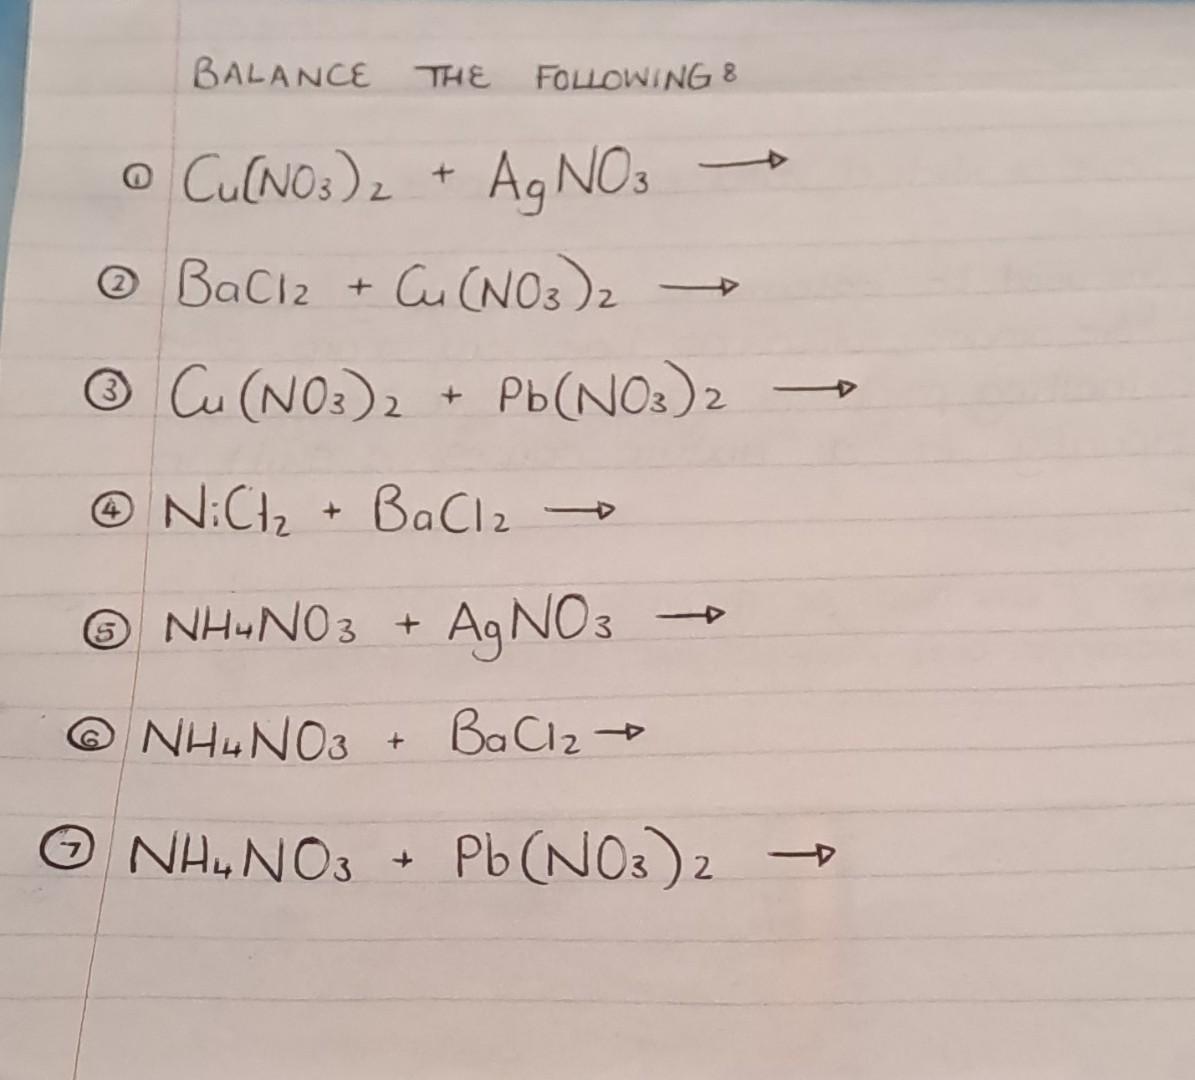 BALANCE THE FOLLOWING:
① Cu(NO₃)₂ + AgNO₃ →
② BaCl₂ + Cu(NO₃)₂ →
③ Cu(NO₃)₂ + Pb(NO₃)₂ →
④ NiCl₂ + BaCl₂ →
⑤ NH₄NO₃ + AgNO₃ →
⑥ NH₄NO₃ + BaCl₂ →
⑦ NH₄NO₃ + Pb(NO₃)₂ →